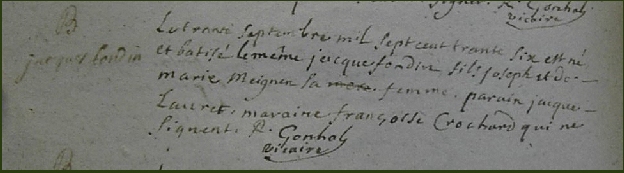 signent. R. Gonhal
vicaire
B
jacques fondin
Le tranti septenbre mil sept cent trante six est né
et batisé le même jacque fondin fils joseph et de
marie meignen sa mere femme. parain jacque
Lauret, maraine françoise Crochard qui ne
signent. R. Gonhal
vicaire
B